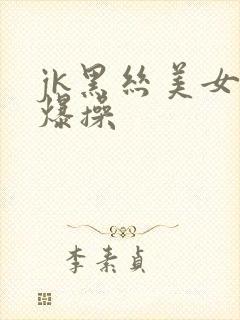 jk黑丝美女
爆操
李素贞